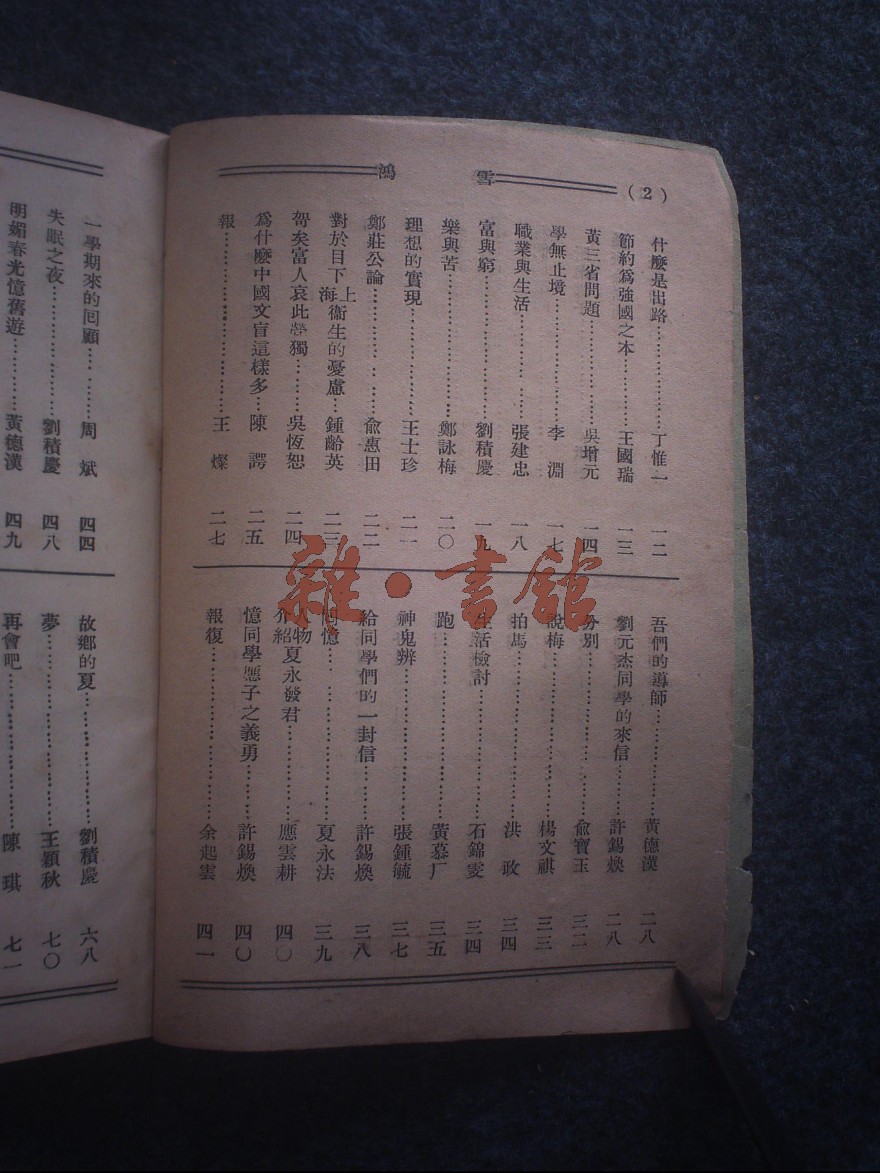 (2)
雪鴻
什麽是出路………………丁惟一 一二
節約爲強國之本…………王國瑞 一三
黃三省問題………………吳增元 一四
學無止境…………………李淵 一七
職業與生活………………張建忠 一八
富與窮……………………劉積慶 一九
樂與苦……………………鄭詠梅 二〇
理想的實現………………王士珍 二一
鄭莊公論…………………俞惠田 二二
對於目下上海衛生的憂慮…鍾齡英 二三
哿矣富人哀此煢獨………吳恆恕 二四
爲什麽中國文盲這樣多…陳諤 二五
報…………………………王燦 二七
吾們的導師………………黃德漢 二八
劉元杰同學的來信………許錫煥 二八
分別………………………俞寶玉 三二
說梅………………………楊文祺 三三
拍馬………………………洪政 三四
生活檢討…………………石錦雯 三四
跑…………………………黃慕厂 三五
神鬼辨……………………張鍾毓 三七
給同學們的一封信………許錫煥 三八
回憶………………………夏永法 三九
人物介紹夏永發君………應雲耕 四〇
憶同學應子之義勇………許錫煥 四〇
報復………………………余起雲 四一
一學期來的回顧…………周斌 四四
失眠之夜…………………劉積慶 四八
明媚春光憶舊遊…………黃德漢 四九
故鄉的夏…………………劉積慶 六八
夢…………………………王穎秋 七〇
再會吧……………………陳琪 七一
雜·書館